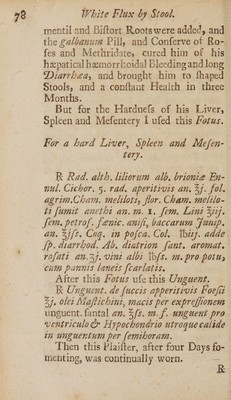 78 White Flux by Stool.
mentil and Bistort Roots were added, and
the galbanum Pill, and Conserve of Ro-
ses and Methridate, cured him of his
hæpatical hæmorrhoidal Bleeding and long
Diarrhœa, and brought him to shaped
Stools, and a constant Health in three
Months.
But for the Hardness of his Liver,
Spleen and Mesentery I used this Fotus.
For a hard Liver, Spleen and Mesen-
tery.
℞ Rad. alth. liliorum alb. brioniæ En-
nul. Cichor. 5. rad. aperitivis an. ℥j. fol.
agrim. Cham. meliloti, flor. Cham. melilo-
ti sumit anethi an. m. 1. sem. Lini ℥iij.
sem. petros. fœnic. anisi, baccarum Junip.
an. ℥ss. Coq. in posca. Col. ℔iij. adde
sp. diarrhod. Ab. diatrion sant. aromat.
rosati an. ʒj. vini albi ℔ss. m. pro potu,
cum pannis laneis scarlatis.
After this Fotus use this Unguent.
℞ Unguent. de succis apperitivis Foesii
℥j. olei Mastichini, macis per expressionem
unguent. santal an. ℥ss. m. f. unguent pro
ventriculo & Hypochondrio utroque calide
in unguentum per semihoram.
Then this Plaister, after four Days fo-
menting, was continually worn.
℞